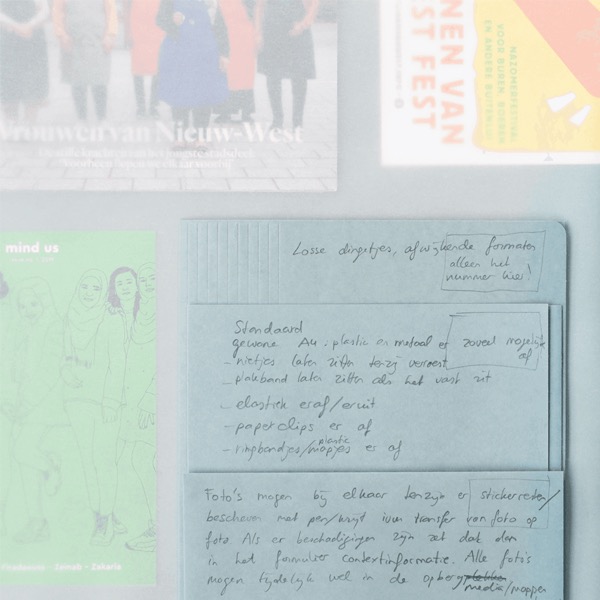 Vrouwen van Nieuw-West
NEN VAN
ST FEST
NAZOMERFESTIVAL
VOOR BUREN, BOEREN
EN ANDERE BUITENLUI
mind us
Jamab - Zakaria
Losse dingetjes, afwijkende formaten
alleen het
nummer hier!
Standaard
gewone A4: plastic en metaal er zoveel mogelijk
af
- nietjes laten zitten tenzij verroest
- plakband laten zitten als het vast zit
- elastiek eraf/eruit
- paperclips er af
plastic
- ringbandjes/mapjes er af
Foto's mogen bij elkaar tenzij er stickerresten/
beschreven met pen/krijt ivm transfer van foto op
foto. Als er beschadigingen zijn zet dat dan
in het formulier contextinformatie. Alle foto's
mogen tijdelijk wel in de opberg
media/mappen